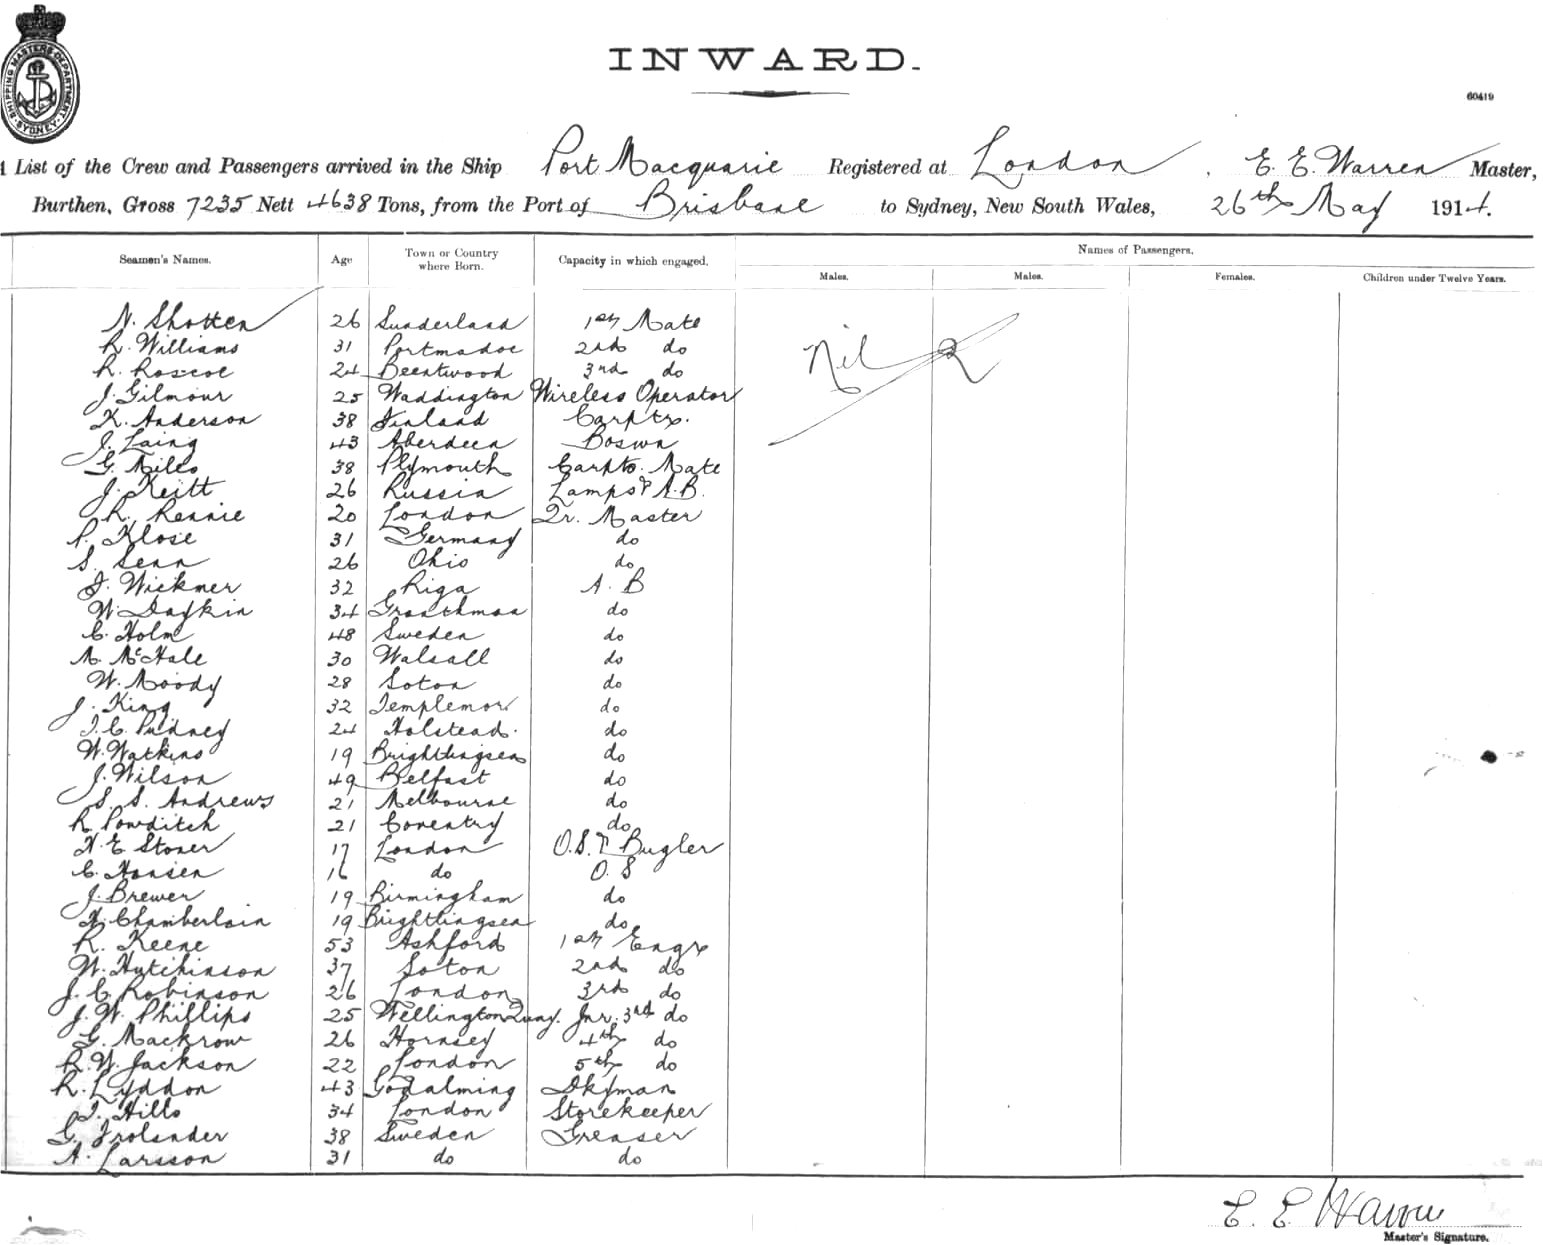 SHIPPING MASTERS DEPARTMENT SYDNEY
INWARD.
60419
List of the Crew and Passengers arrived in the Ship Port Macquarie Registered at London, E. E. Warren Master,
Burthen, Gross 7235 Nett 4638 Tons, from the Port of Brisbane to Sydney, New South Wales, 26th May 1914.
Seamen's Names. Age Town or Country where Born. Capacity in which engaged. Names of Passengers.
Males. Males. Females. Children under Twelve Years.
N. Shotten 26 Sunderland 1st Mate
R. Williams 31 Portmadoc 2nd do Nil
R. Roscoe 24 Brentwood 3rd do
J. Gilmour 25 Waddington Wireless Operator
K. Anderson 38 Finland Carptr.
J. Laing 43 Aberdeen Boswn
G. Mills 38 Plymouth Carptr. Mate
J. Keitt 26 Russia Lamps & A.B.
R. Rennie 20 London Qr. Master
P. Klose 31 Germany do
S. Senn 26 Ohio do
J. Wickmer 32 Riga A. B
W. Daykin 34 do
C. Holm 48 Sweden do
M. McHale 30 Walsall do
W. Moody 28 Soton do
J. King 32 Templemor do
J. C. Pudney 24 Halstead. do
W. Watkins 19 Brightlingsea do
J. Wilson 49 Belfast do
S. S. Andrews 21 Melbourne do
R Powditch 21 Coventry do
H. E Stoner 17 London O.S. & Bugler
C. Hansen 16 do O. S
J. Brewer 19 Birmingham do
H. Chamberlain 19 Brightlingsea do
R. Keene 53 Ashford 1st Engr
W. Hutchinson 37 Soton 2nd do
J. C. Robinson 26 London 3rd do
J. W. Phillips 25 Wellington Quay. Jnr. 3rd do
G. Mackrow 26 Hornsey 4th do
R. W. Jackson 22 London 5th do
R. Lyddon 43 Godalming Dkyman
T. Hills 34 London Storekeeper
G. Frolander 38 Sweden Greaser
A. Larsson 31 do do
E. E. Warren
Master's Signature.